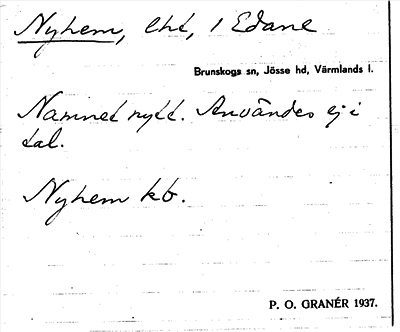 Nyhem, lht, 1 Edane
Brunskogs sn, Jösse hd, Värmlands l.
Namnet nytt. Användes ej i
tal.
Nyhem kb.
P. O. GRANÉR 1937.